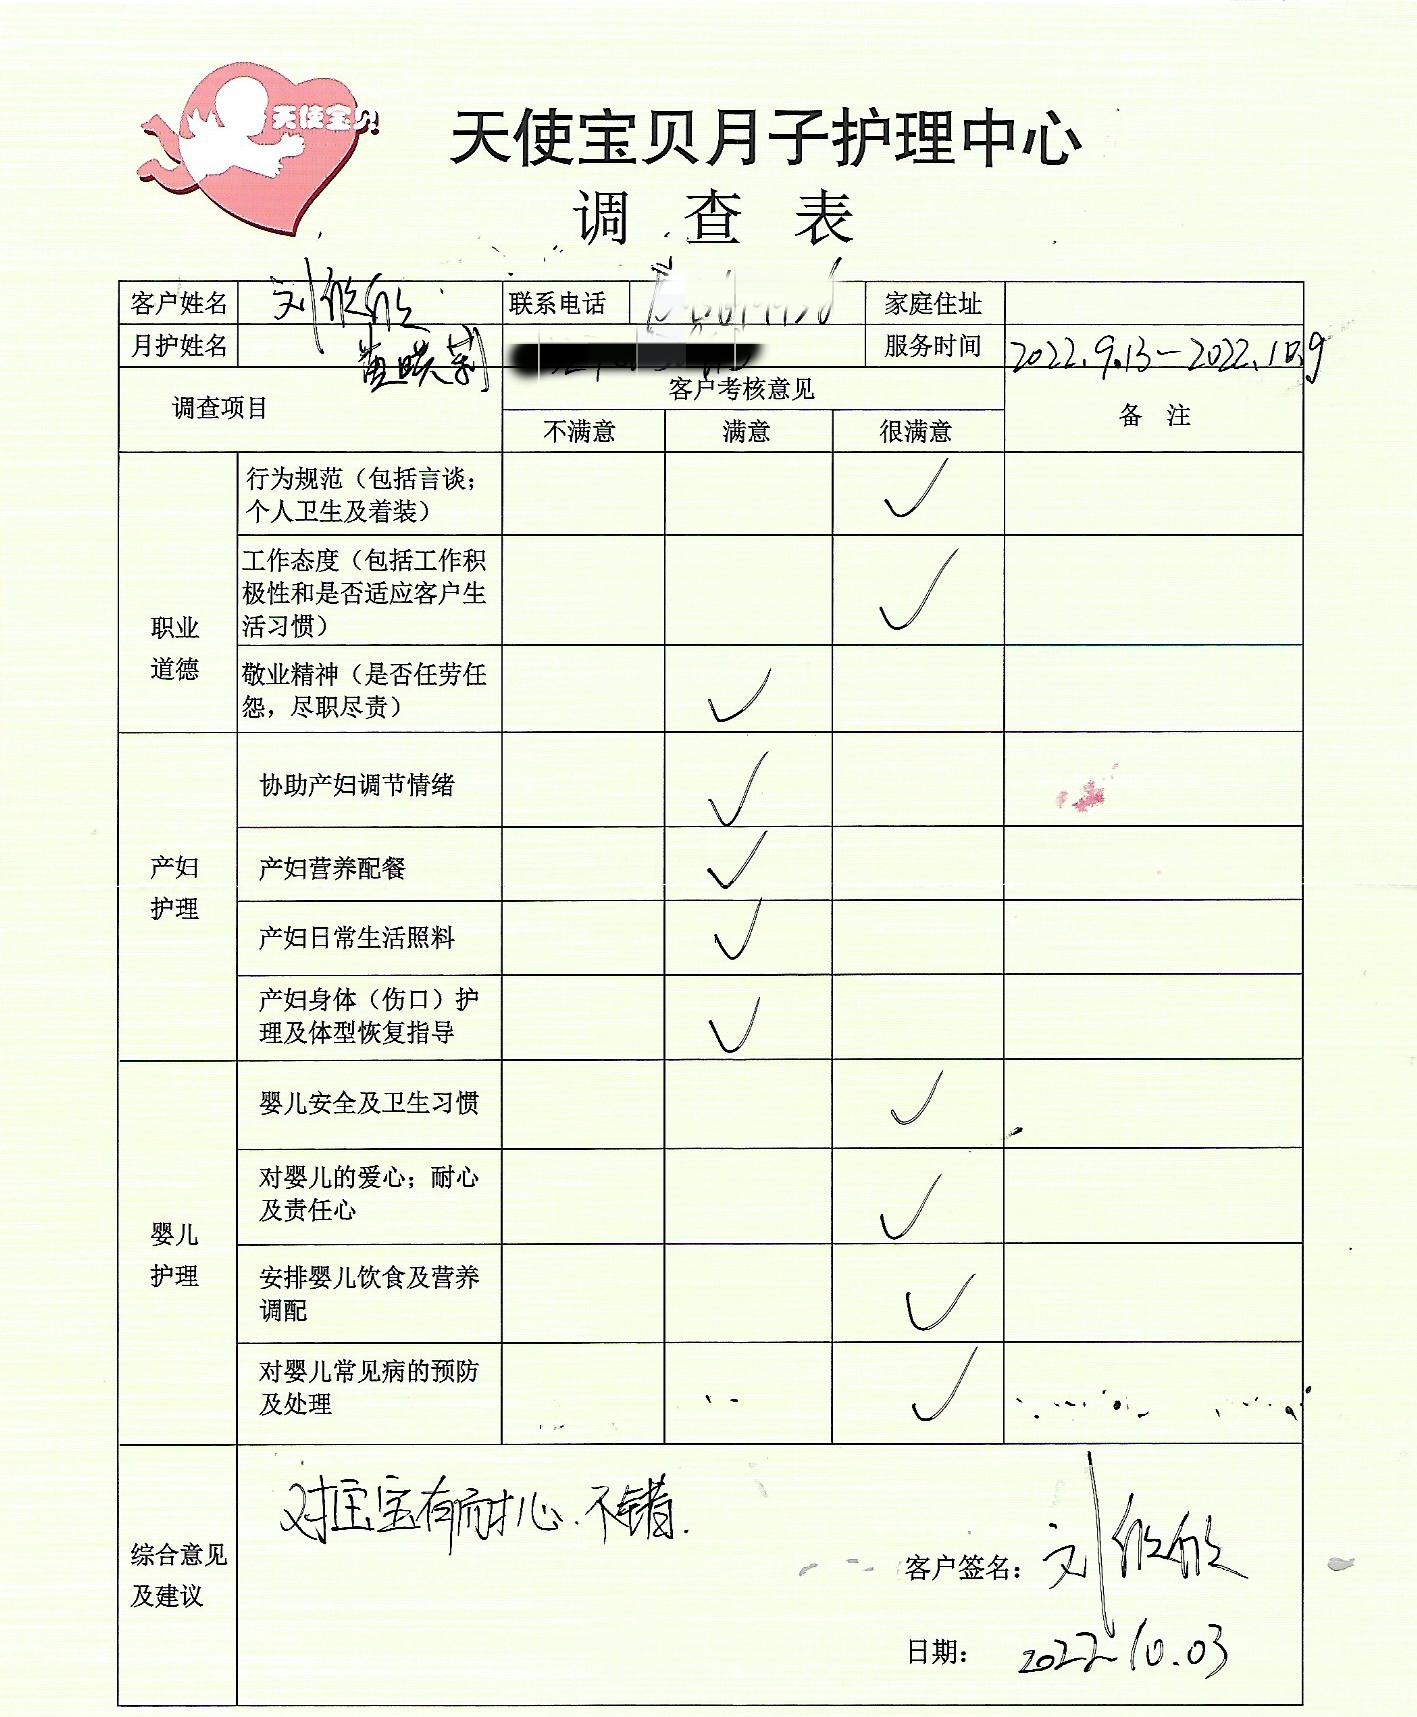 天使宝贝
天使宝贝月子护理中心
调 查 表
客户姓名 刘欣欣 联系电话 家庭住址
月护姓名 服务时间 2022.9.13-2022.10.9
调查项目 客户考核意见 备 注
不满意 满意 很满意
职业
道德
行为规范（包括言谈；
个人卫生及着装） ✓
工作态度（包括工作积
极性和是否适应客户生
活习惯） ✓
敬业精神（是否任劳任
怨，尽职尽责） ✓
产妇
护理
协助产妇调节情绪 ✓
产妇营养配餐 ✓
产妇日常生活照料 ✓
产妇身体（伤口）护
理及体型恢复指导 ✓
婴儿
护理
婴儿安全及卫生习惯 ✓
对婴儿的爱心；耐心
及责任心 ✓
安排婴儿饮食及营养
调配 ✓
对婴儿常见病的预防
及处理 ✓
综合意见
及建议
对宝宝有耐心.不错.
客户签名：刘欣欣
日期： 2022 10.03